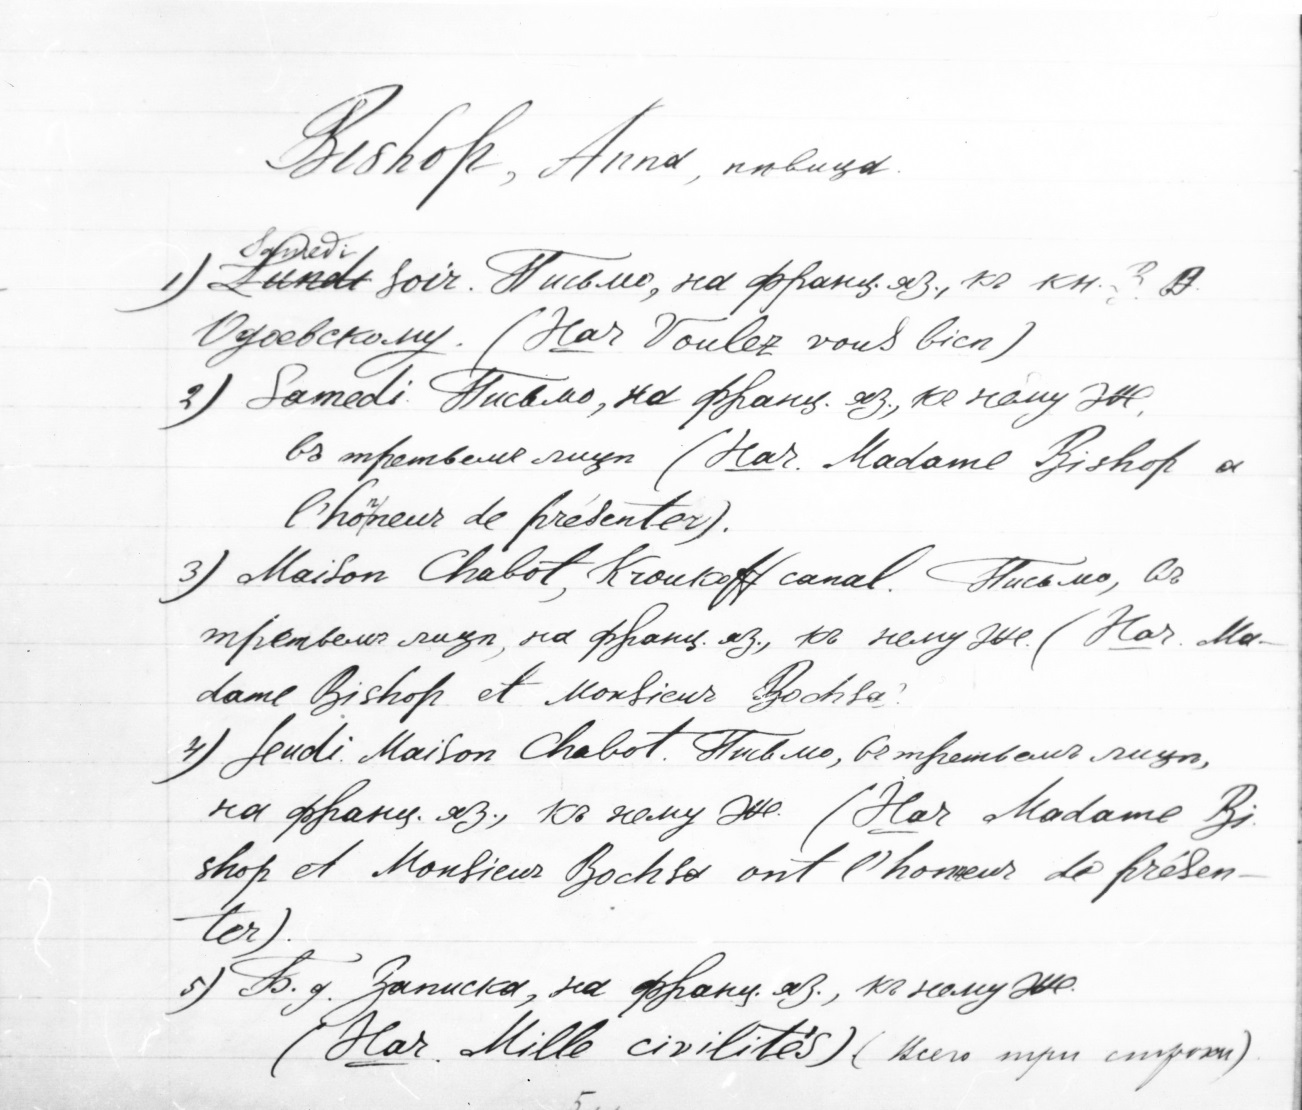 Bishop, Anna, пѣвица.
Samedi
1) Lundi soir. Письмо, на франц. яз., къ кн. В.
Одоевскому. (Нач Voulez vous bien)
2) Samedi. Письмо, на франц. яз., къ нему же,
въ третьемъ лицѣ (Нач. Madame Bishop a
l'honneur de présenter).
3) Maison Chabot, Kroukoff canal. Письмо, въ
третьемъ лицѣ, на франц. яз., къ нему же. (Нач. Ma-
dame Bishop et Monsieur Bochsa
4) Jeudi. Maison Chabot. Письмо, въ третьемъ лицѣ,
на франц. яз., къ нему же. (Нач Madame Bi-
shop et Monsieur Bochsa ont l'honneur de présen-
ter).
5) Б. д. Записка, на франц. яз., къ нему же.
(Нач. Mille civilités) (всего три строки).